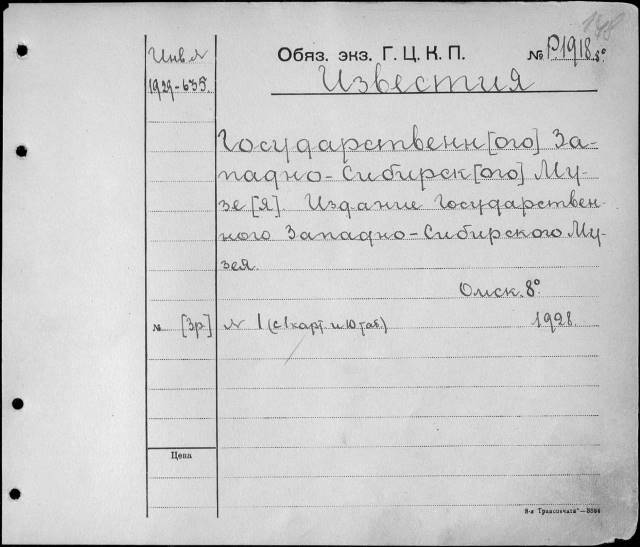 148
Инв. №
1929-635.
Обяз. экз. Г. Ц. К. П. № Р.1918.8°
Известия
Государственн[ого] За-
падно-Сибирск[ого] Му-
зе[я]. Издание Государствен-
ного Западно-Сибирского Му-
зея.
Омск. 8°
№ [3р.] № 1 (с 1 карт. и 10 таб.) 1928.
Цена